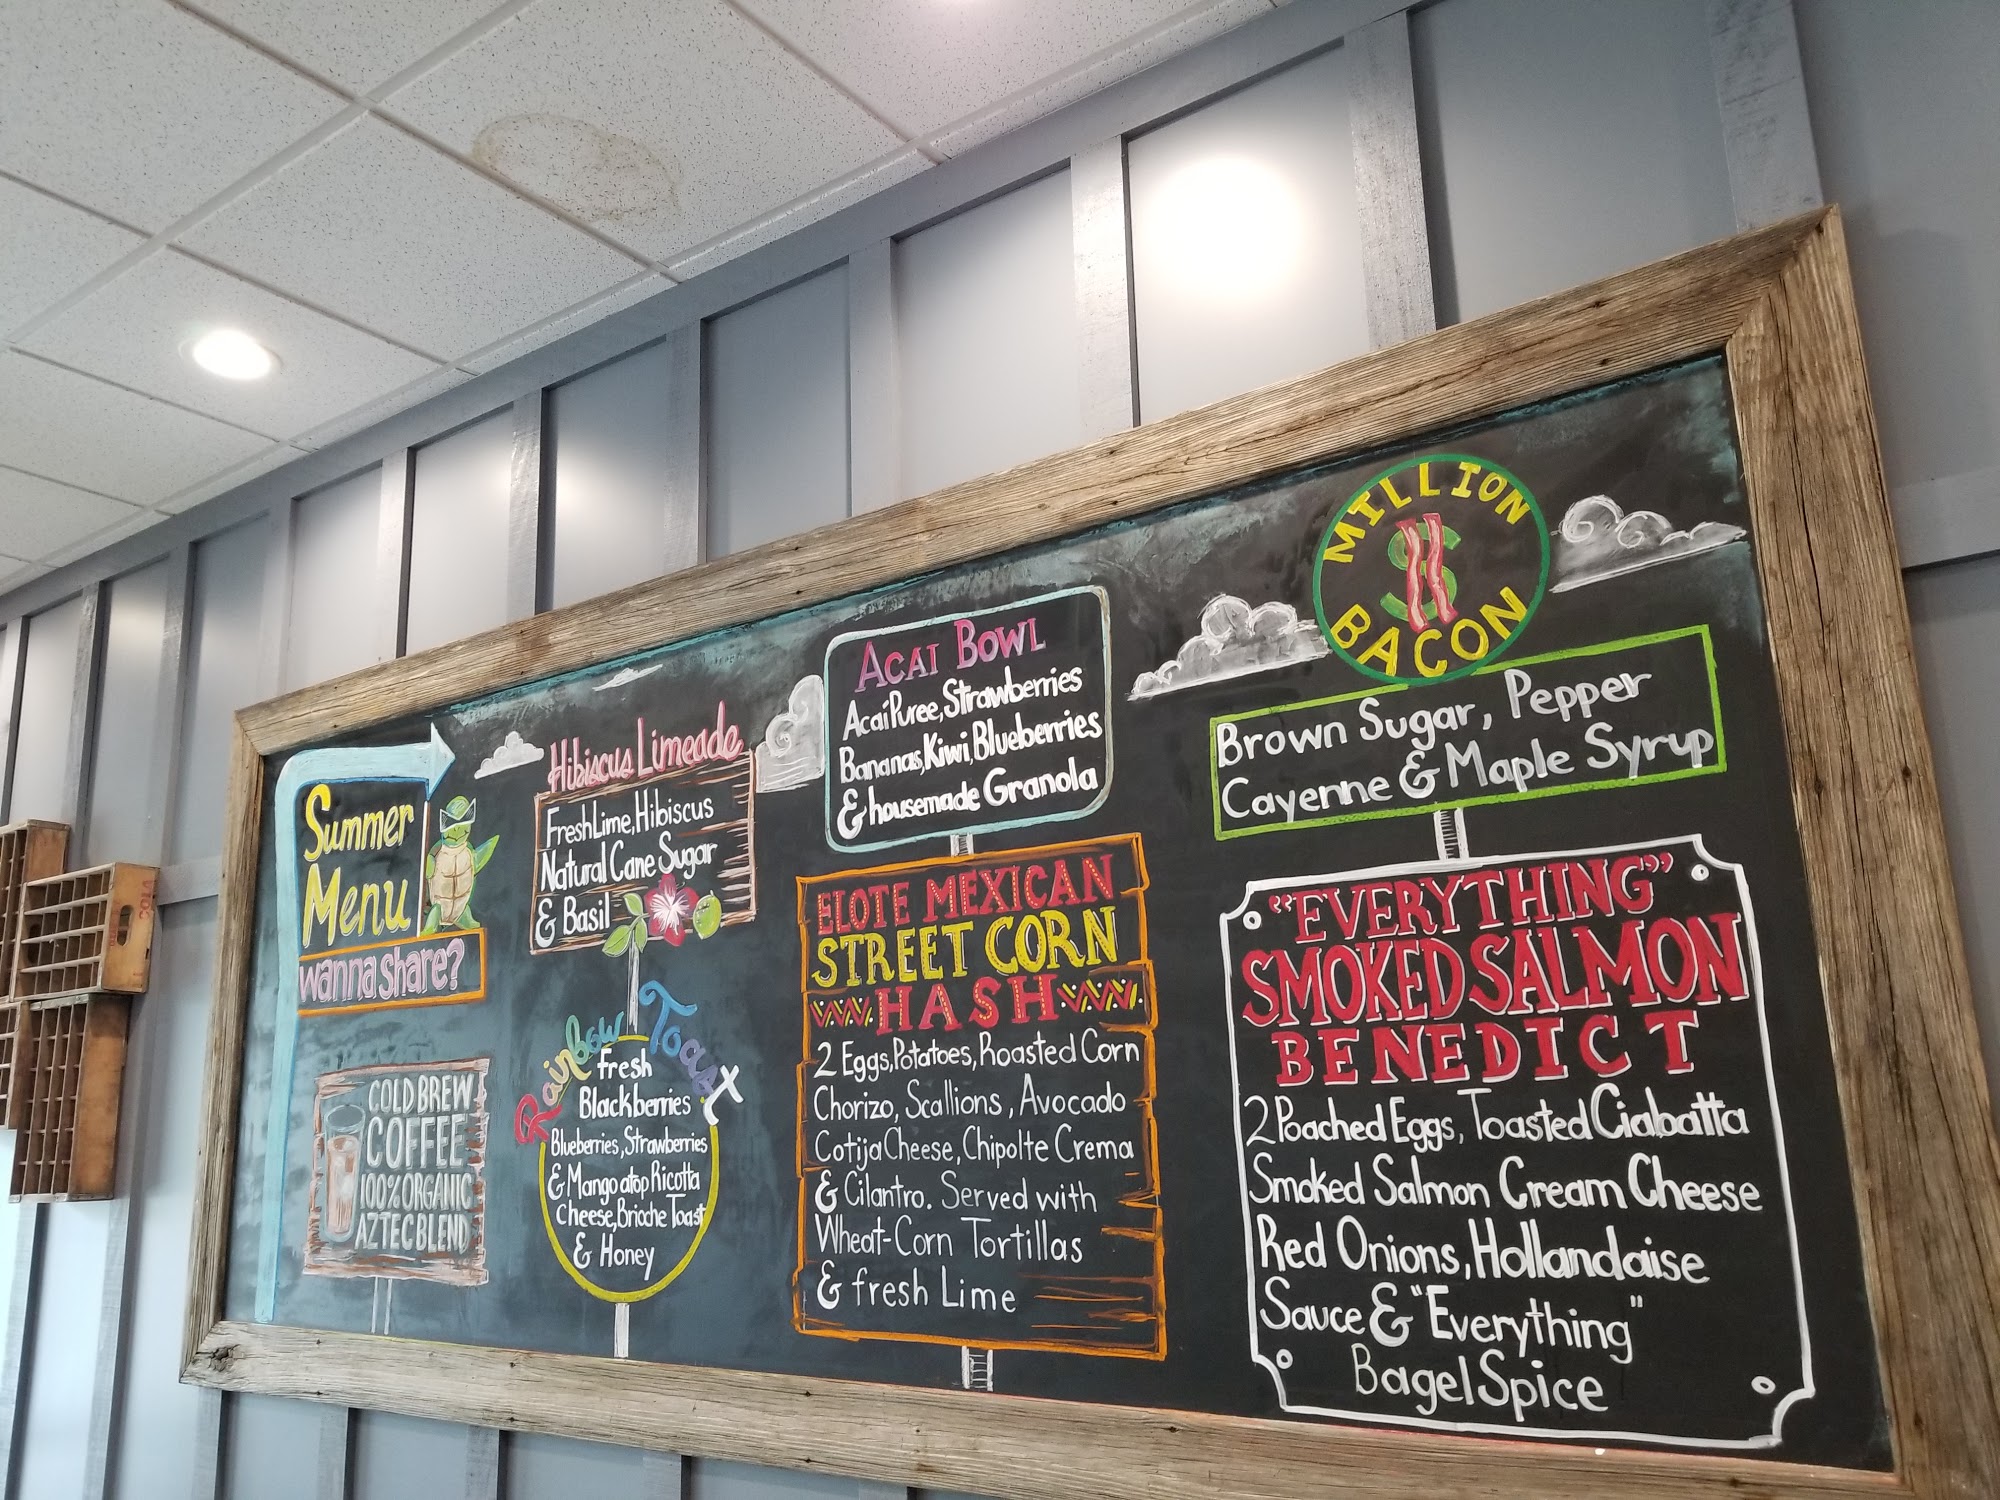 Summer
Menu
wanna share?
COLD BREW
COFFEE
100% ORGANIC
AZTEC BLEND
Hibiscus Limeade
Fresh Lime, Hibiscus
Natural Cane Sugar
& Basil
Rainbow Toast
Fresh
Blackberries
Blueberries, Strawberries
& Mango atop Ricotta
Cheese, Brioche Toast
& Honey
ACAI BOWL
Acai Puree, Strawberries
Bananas, Kiwi, Blueberries
& housemade Granola
ELOTE MEXICAN
STREET CORN
HASH
2 Eggs, Potatoes, Roasted Corn
Chorizo, Scallions, Avocado
Cotija Cheese, Chipolte Crema
& Cilantro. Served with
Wheat-Corn Tortillas
& fresh Lime
MILLION
$
BACON
Brown Sugar, Pepper
Cayenne & Maple Syrup
"EVERYTHING"
SMOKED SALMON
BENEDICT
2 Poached Eggs, Toasted Ciabatta
Smoked Salmon Cream Cheese
Red Onions, Hollandaise
Sauce & "Everything"
Bagel Spice
COLA